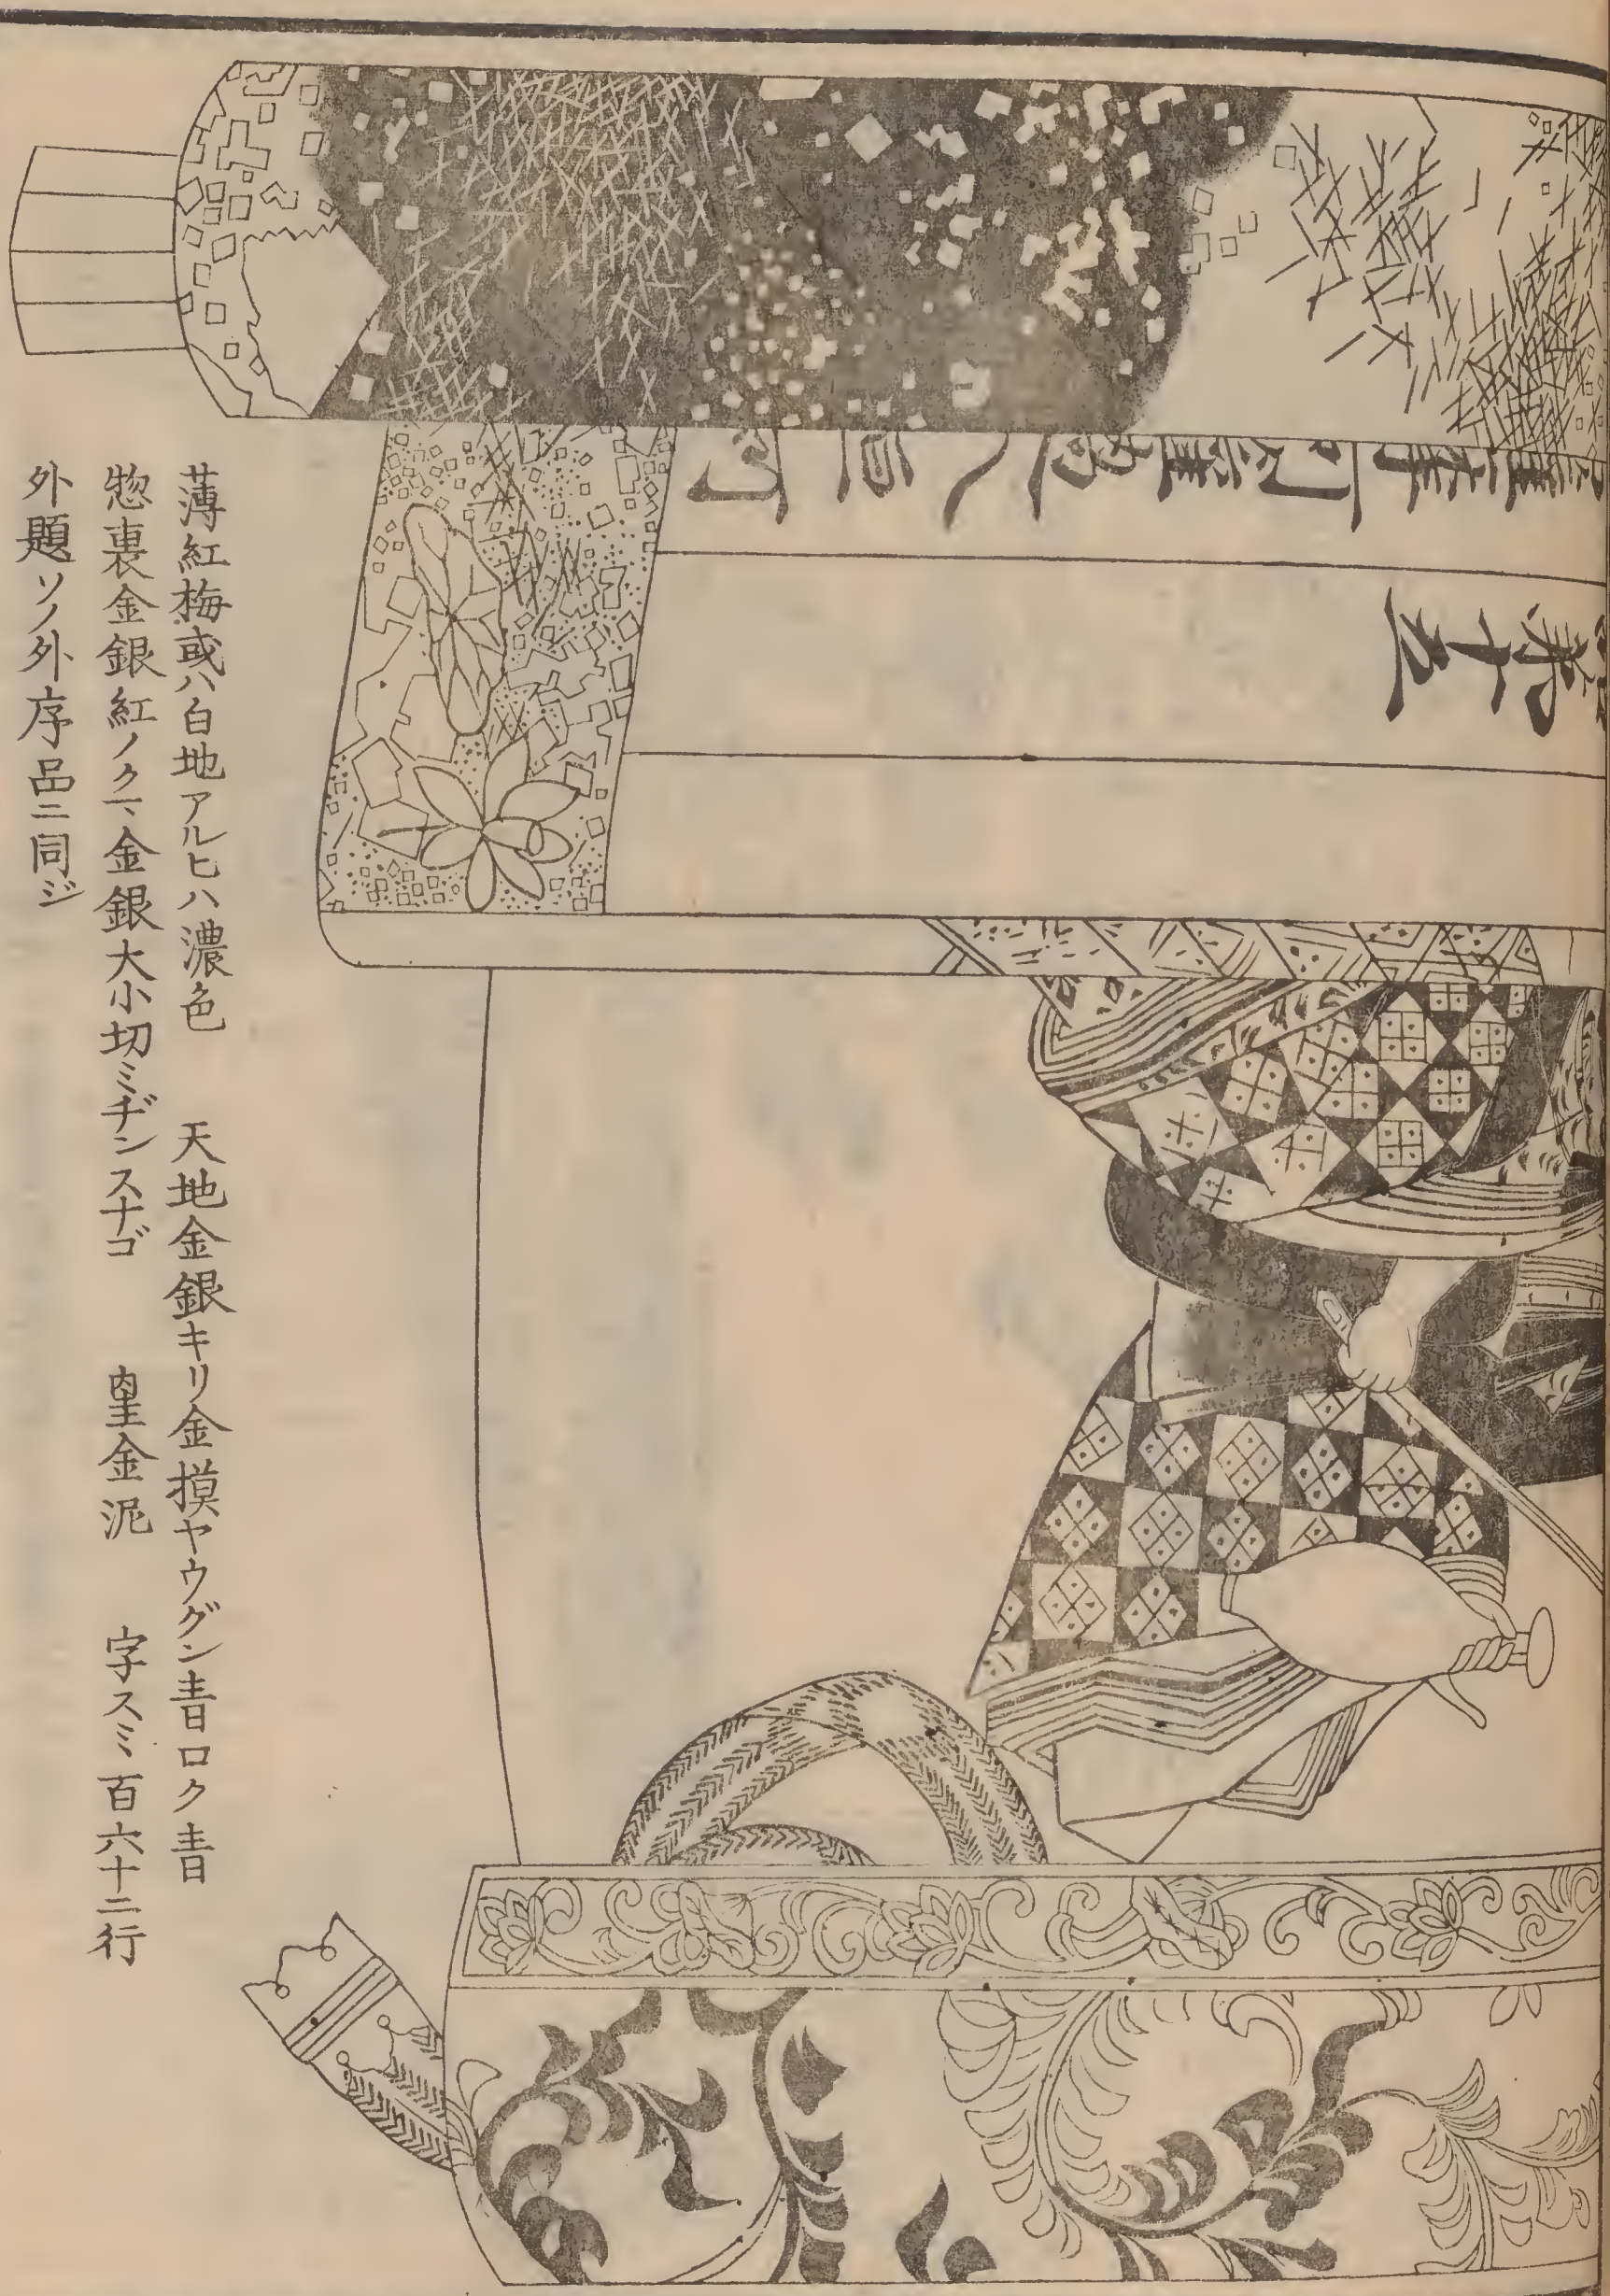 薄紅梅或ハ白地アルヒハ濃色　天地金銀キリ金摸ヤウグン青ロク青
惣裏金銀紅ノクマ金銀大小切ミヂンスナゴ　罫金泥　字スミ百六十二行
外題ソノ外序品ニ同ジ
第十五